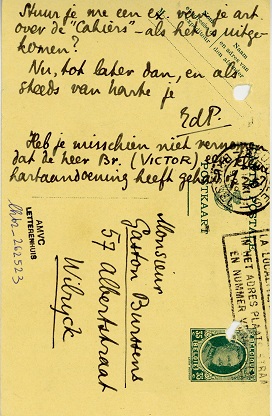 Stuur je me een ex. van je art.
over de "Cahiers" – als het is uitge-
komen?
Nu, tot later dan, en als
steeds van harte je
EdP.
Heb je misschien niet vernomen
dat de heer Br. (VICTOR)
hartaandoening heeft gehad?
Naam
en adres van
den afzender
POSTKAART
AMVC
LETTERENHUIS
lhbr-262523
Monsieur
Gaston Burssens
57 Albertstraat
Wilryck
IN HET ADRES PLAATS
EN NUMMER
35
35